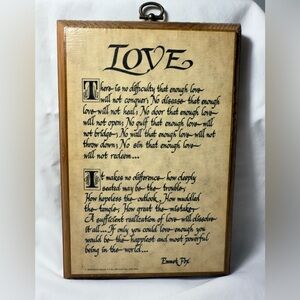 LOVE
There is no difficulty that enough love
will not conquer; No disease that enough
love will not heal; No door that enough love
will not open; No gulf that enough love will
not bridge; No wall that enough love will not
throw down; No sin that enough love
will not redeem...
It makes no difference how deeply
seated may be the trouble,
How hopeless the outlook, How muddled
the tangle, How great the mistake,
A sufficient realization of love will dissolve
it all.... If only you could love enough you
would be the happiest and most powerful
being in the world...
Emmet Fox